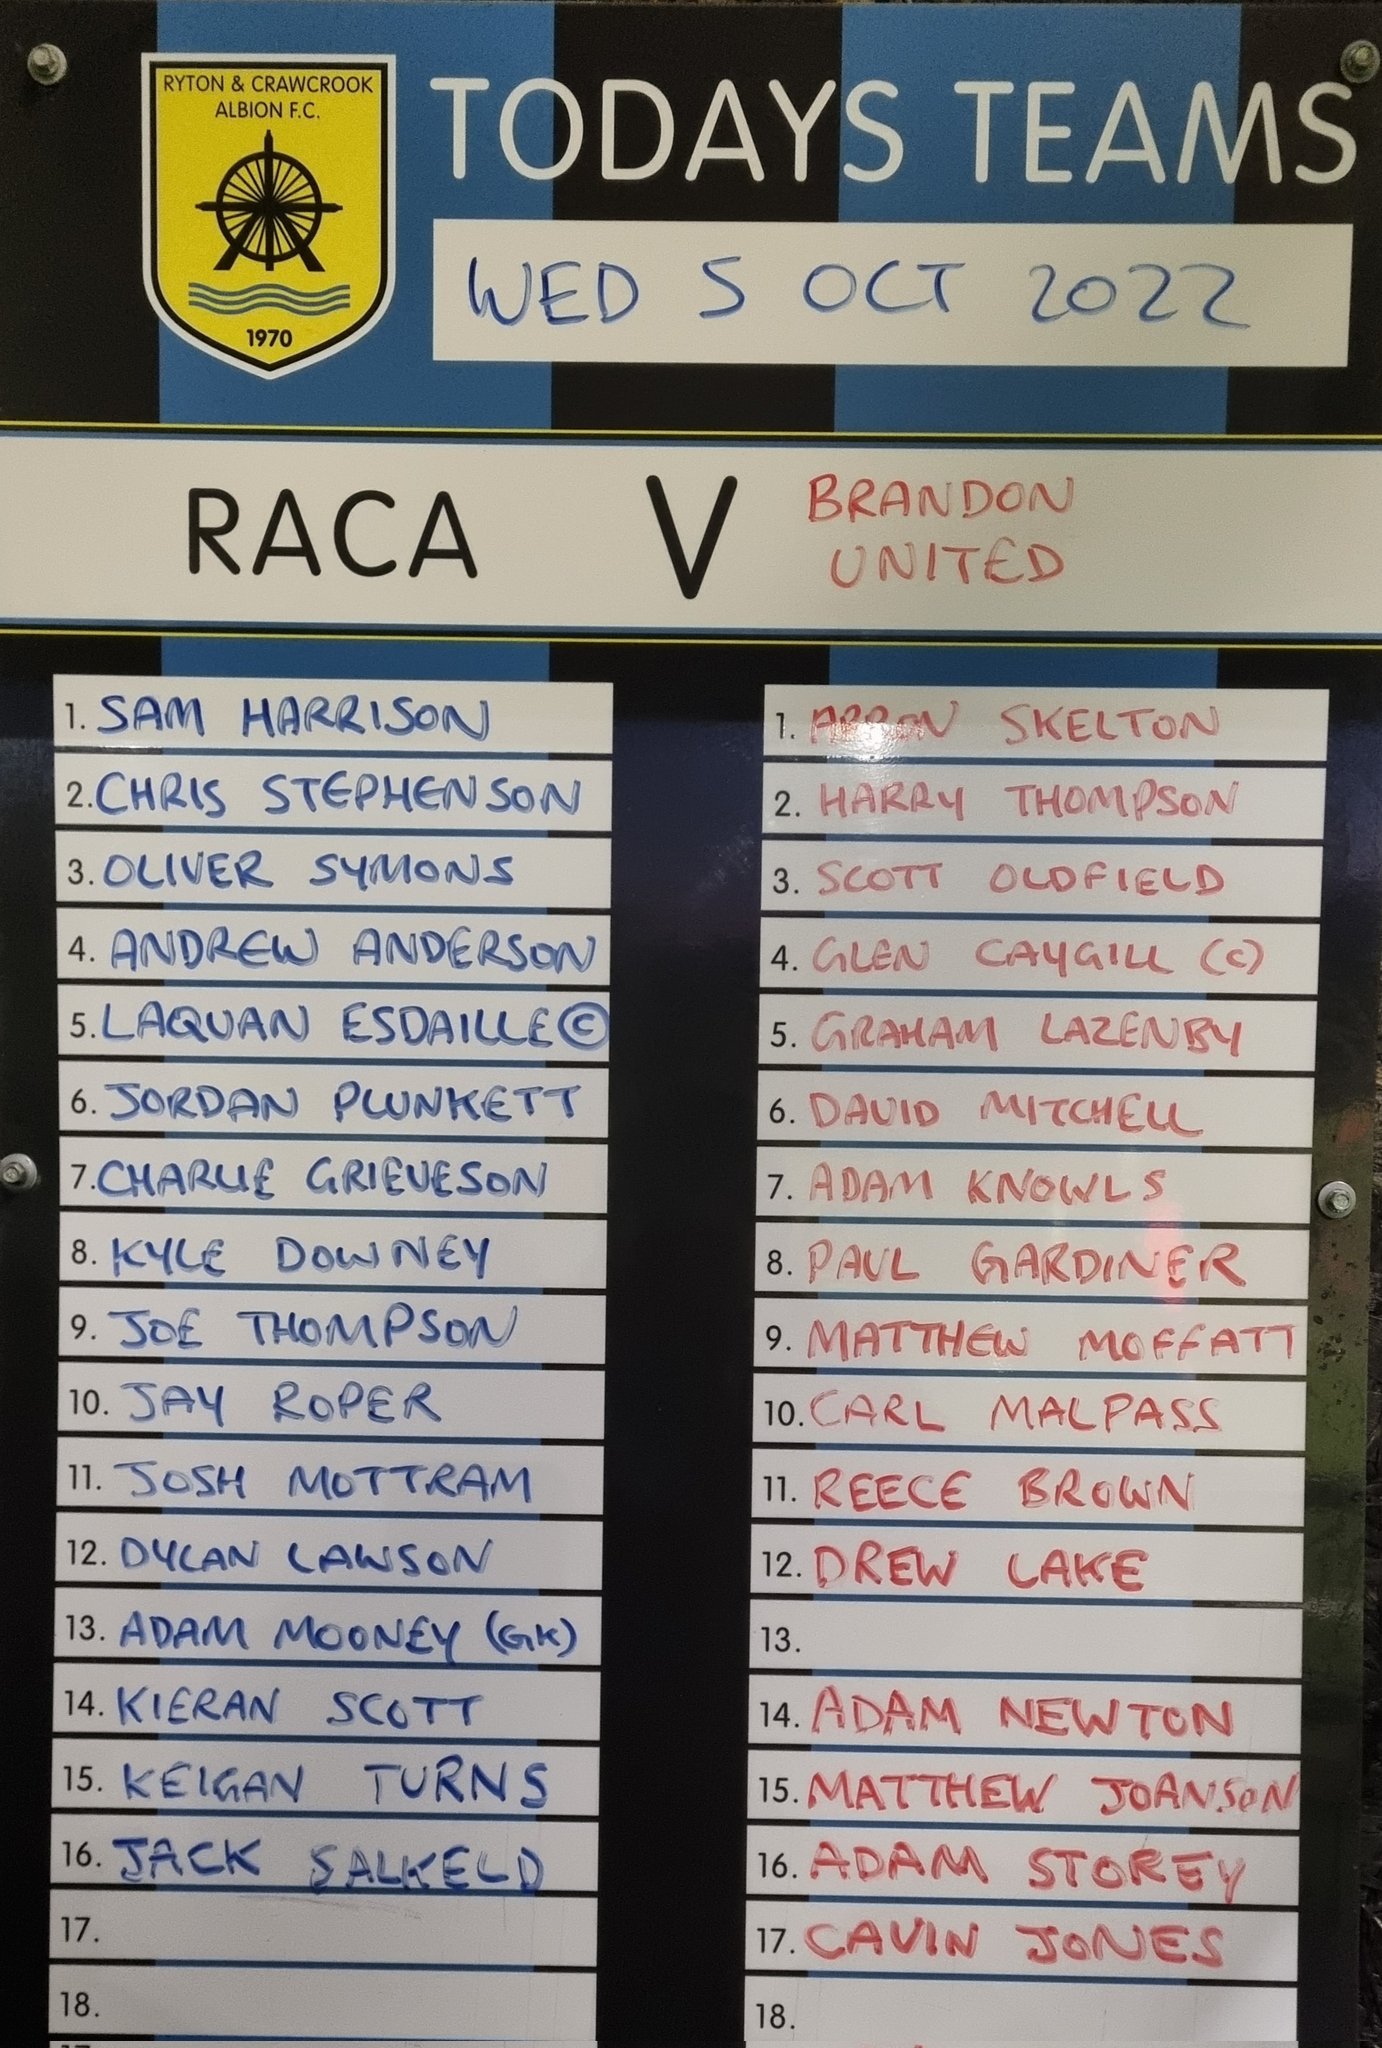 RYTON & CRAWCROOK
ALBION F.C.
1970
TODAYS TEAMS
WED 5 OCT 2022
RACA V BRANDON
UNITED
1. SAM HARRISON
2. CHRIS STEPHENSON
3. OLIVER SYMONS
4. ANDREW ANDERSON
5. LAQUAN ESDAILLE ©
6. JORDAN PLUNKETT
7. CHARLIE GRIEVESON
8. KYLE DOWNEY
9. JOE THOMPSON
10. JAY ROPER
11. JOSH MOTTRAM
12. DYLAN LAWSON
13. ADAM MOONEY (GK)
14. KIERAN SCOTT
15. KEIGAN TURNS
16. JACK SALKELD
17.
18.
1. SKELTON
2. HARRY THOMPSON
3. SCOTT OLDFIELD
4. GLEN CAYGILL (C)
5. GRAHAM LAZENBY
6. DAVID MITCHELL
7. ADAM KNOWLS
8. PAUL GARDINER
9. MATTHEW MOFFATT
10. CARL MALPASS
11. REECE BROWN
12. DREW LAKE
13.
14. ADAM NEWTON
15. MATTHEW JOANSON
16. ADAM STOREY
17. CAVIN JONES
18.